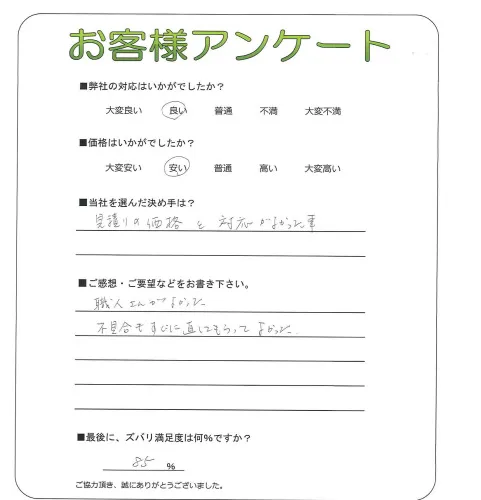 お客様アンケート
■弊社の対応はいかがでしたか？
大変良い 良い 普通 不満 大変不満
■価格はいかがでしたか？
大変安い 安い 普通 高い 大変高い
■当社を選んだ決め手は？
見積りの価格と対応がよかった事
■ご感想・ご要望などをお書き下さい。
職人さんがよかった
不具合もすぐに直してもらってよかった。
■最後に、ズバリ満足度は何％ですか？
85 ％
ご協力頂き、誠にありがとうございました。